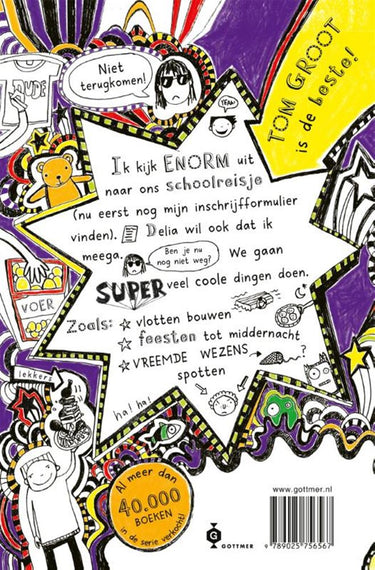 Niet
terugkomen!
DUDE
YEAH!
TOM GROOT
is de beste!
Ik kijk ENORM uit
naar ons schoolreisje
(nu eerst nog mijn inschrijfformulier
vinden). Delia wil ook dat ik
meega. Ben je nu
nog niet weg? We gaan
SUPER veel coole dingen doen.
Zoals: vlotten bouwen
feesten tot middernacht
VREEMDE WEZENS ?
spotten
VOER
lekkers
ha! ha!
Al meer dan
40.000
BOEKEN
in de serie verkocht!
G
GOTTMER
www.gottmer.nl
9 789025 756567